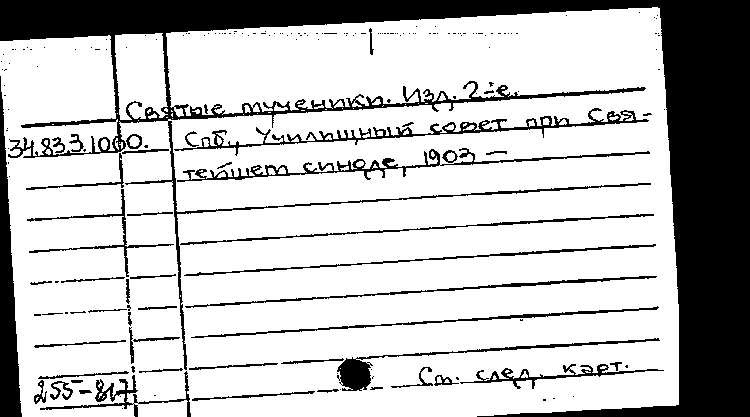 Святые мученики. Изд. 2-е.
34.83.3.1060. Спб., Училищный совет при Свя-
тейшем синоде, 1903 —
255-817
См. след. карт.